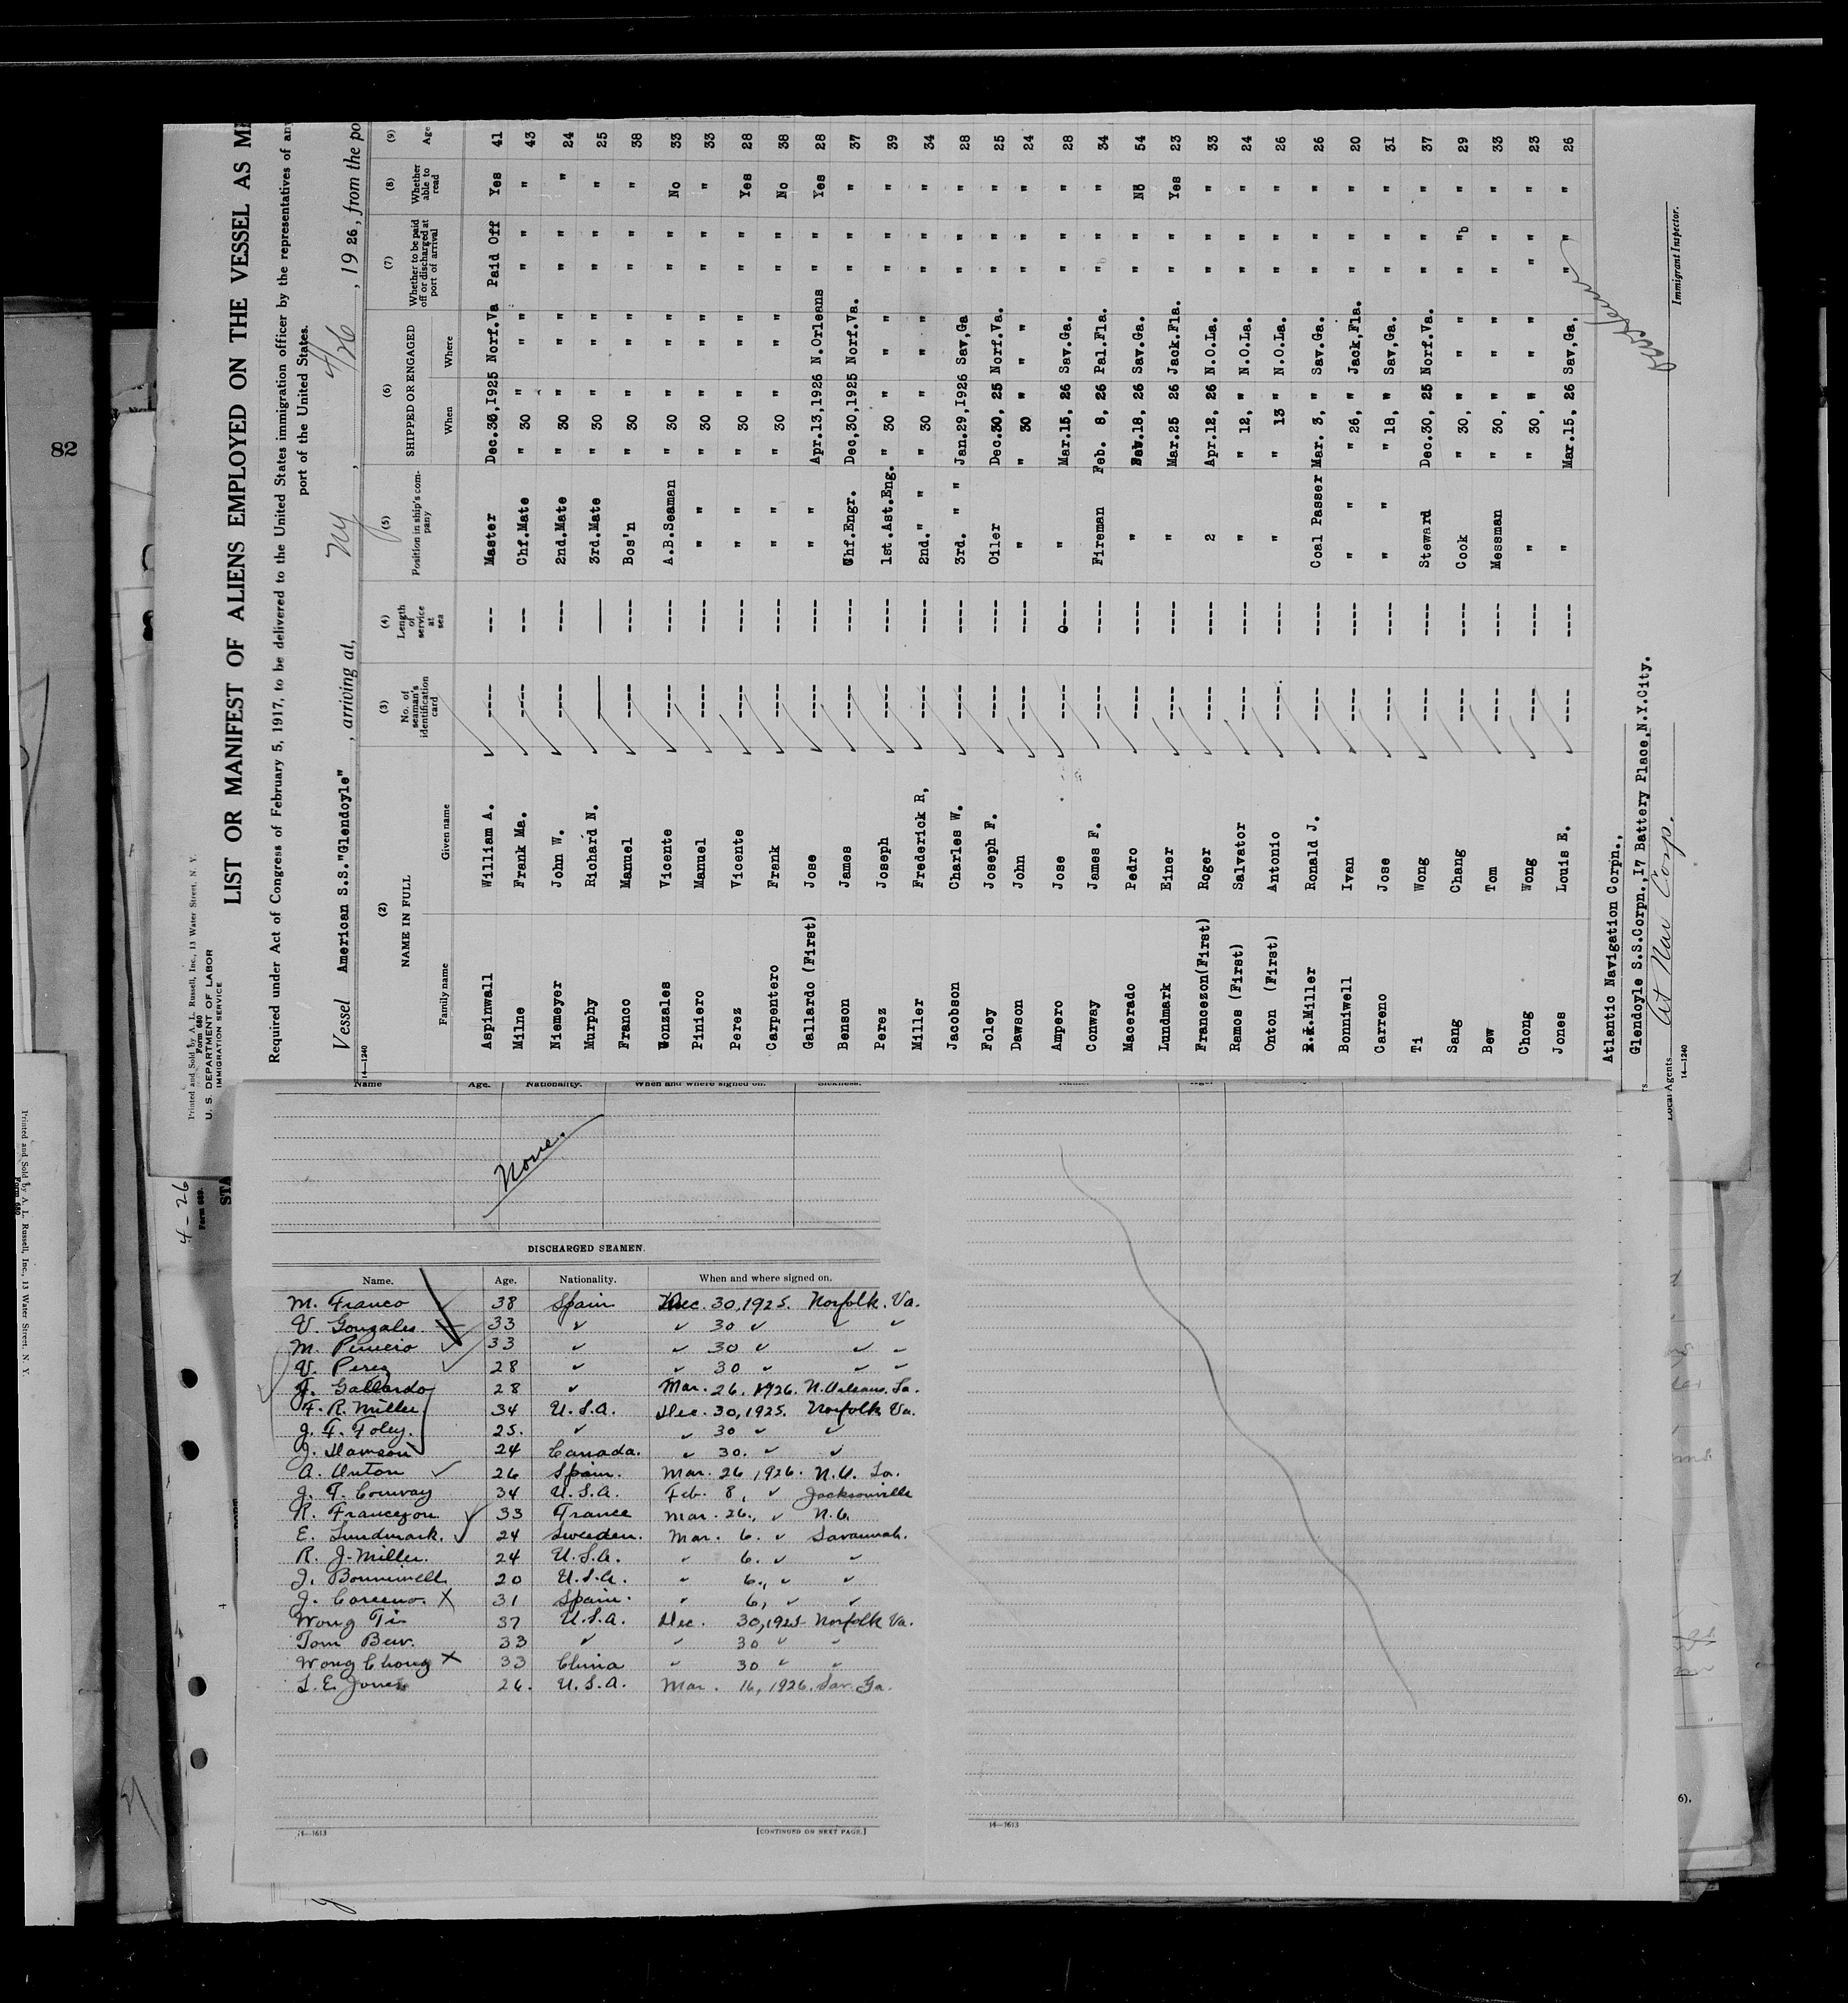 82
Printed and Sold by A. L. Russell, Inc., 13 Water Street, N. Y.
Form 680
U. S. DEPARTMENT OF LABOR
IMMIGRATION SERVICE
LIST OR MANIFEST OF ALIENS EMPLOYED ON THE VESSEL AS
Required under Act of Congress of February 5, 1917, to be delivered to the United States immigration officer by the representatives of
port of the United States.
Vessel American S.S."Glendoyle", arriving at, NY, 4/26, 1926, from the po
14—1240
(2) NAME IN FULL (3) No. of seaman's identification card (4) Length of service at sea (5) Position in ship's company (6) SHIPPED OR ENGAGED (7) Whether to be paid off or discharged at port of arrival (8) Whether able to read (9) Age
Family name Given name When Where
Aspinwall William A. ---- --- Master Dec.30,1925 Norf.Va Paid Off Yes 41
Milne Frank Ma. ---- --- Chf.Mate " 30 " " " " " " 43
Niemeyer John W. ---- ---- 2nd.Mate " 30 " " " " " " 24
Murphy Richard N. 3rd.Mate " 30 " " " " " " 25
Franco Manuel ---- ---- Bos'n " 30 " " " " " " 38
Gonzales Vicente ---- ---- A.B.Seaman " 30 " " " " " No 33
Piniero Manuel ---- ---- " " " 30 " " " " " " 33
Perez Vicente ---- ---- " " " 30 " " " " " Yes 28
Carpentero Frank ---- ---- " " " 30 " " " " " No 38
Gallardo (First) Jose ---- ---- " " Apr.13,1926 N.Orleans " " Yes 28
Benson James ---- ---- Chf.Engr. Dec,30,1925 Norf.Va. " " " 37
Perez Joseph ---- ---- 1st.Ast.Eng. " 30 " " " " " " 39
Miller Frederick R, ---- ---- 2nd. " " " 30 " " " " " " 34
Jacobson Charles W. ---- ---- 3rd. " " Jan.29,1926 Sav,Ga " " " 28
Foley Joseph F. ---- ---- Oiler Dec.30, 25 Norf.Va. " " " 25
Dawson John ---- ---- " " 30 " " " " " " 24
Ampero Jose ---- ---- " Mar.15, 26 Sav.Ga. " " " 28
Conway James F. ---- ---- Fireman Feb. 8, 26 Pal.Fla. " " " 34
Macerado Pedro ---- ---- " Feb.18, 26 Sav.Ga. " " No 54
Lundmark Einer ---- ---- " Mar.25 26 Jack.Fla. " " Yes 23
Francezon(First) Roger ---- ---- 2 Apr.12, 26 N.O.La. " " " 33
Ramos (First) Salvator ---- ---- " " 12, " N.O.La. " " " 24
Onton (First) Antonio ---- ---- " " 13 " N.O.La. " " " 26
Miller Ronald J. ---- ---- Coal Passer Mar. 3, " Sav.Ga. " " " 26
Bonniwell Ivan ---- ---- " " " 26, " Jack,Fla. " " " 20
Carreno Jose ---- ---- " " " 18, " Sav,Ga. " " " 31
Ti Wong ---- ---- Steward Dec.30, 25 Norf.Va. " " " 37
Sang Chang ---- ---- Cook " 30, " " " " " " 29
Bew Tom ---- ---- Messman " 30, " " " " " " 33
Chong Wong ---- ---- " " 30, " " " " " " 23
Jones Louis E. ---- ---- " Mar.15, 26 Sav,Ga, " " " 26
Atlantic Navigation Corpn.,
Glendoyle S.S.Corpn.,17 Battery Place,N.Y.City.
Local Agents At Nav Corp.
14—1240
Immigrant Inspector.
Name Age. Nationality. When and where signed on. Sickness.
None.
DISCHARGED SEAMEN.
Name. Age. Nationality. When and where signed on.
M. Franco 38 Spain Dec. 30, 1925. Norfolk. Va.
V. Gonzales 33 " " 30 " " "
M. Piniero 33 " " 30 " " "
V. Perez 28 " " 30 " " "
J. Gallardo 28 " Mar. 26, 1926. N. Orleans. La.
F. R. Miller 34 U.S.A. Dec. 30, 1925. Norfolk Va.
J. F. Foley. 25. " " 30 " "
J. Dawson 24 Canada. " 30. " "
A. Onton 26 Spain. Mar. 26, 1926. N.O. La.
J. F. Conway 34 U.S.A. Feb. 8, " Jacksonville
R. Francezon 33 France Mar. 26, " N.O.
E. Lundmark. 24 Sweeden. Mar. 6. " Savannah.
R. J. Miller. 24 U.S.A. " 6. " "
I. Bonniwell 20 U.S.A. " 6., " "
J. Carreno. X 31 Spain. " 6, " "
Wong Ti 37 U.S.A. Dec. 30, 1925 Norfolk Va.
Tom Bew. 33 " " 30 " "
Wong Chong X 33 China " 30 " "
L. E. Jones 26. U.S.A. Mar. 16, 1926. Sav. Ga.
14—1613
[CONTINUED ON NEXT PAGE.]
14—1613
4-26
STA
Printed and Sold by A. L. Russell, Inc., 13 Water Street, N. Y.
Form 680